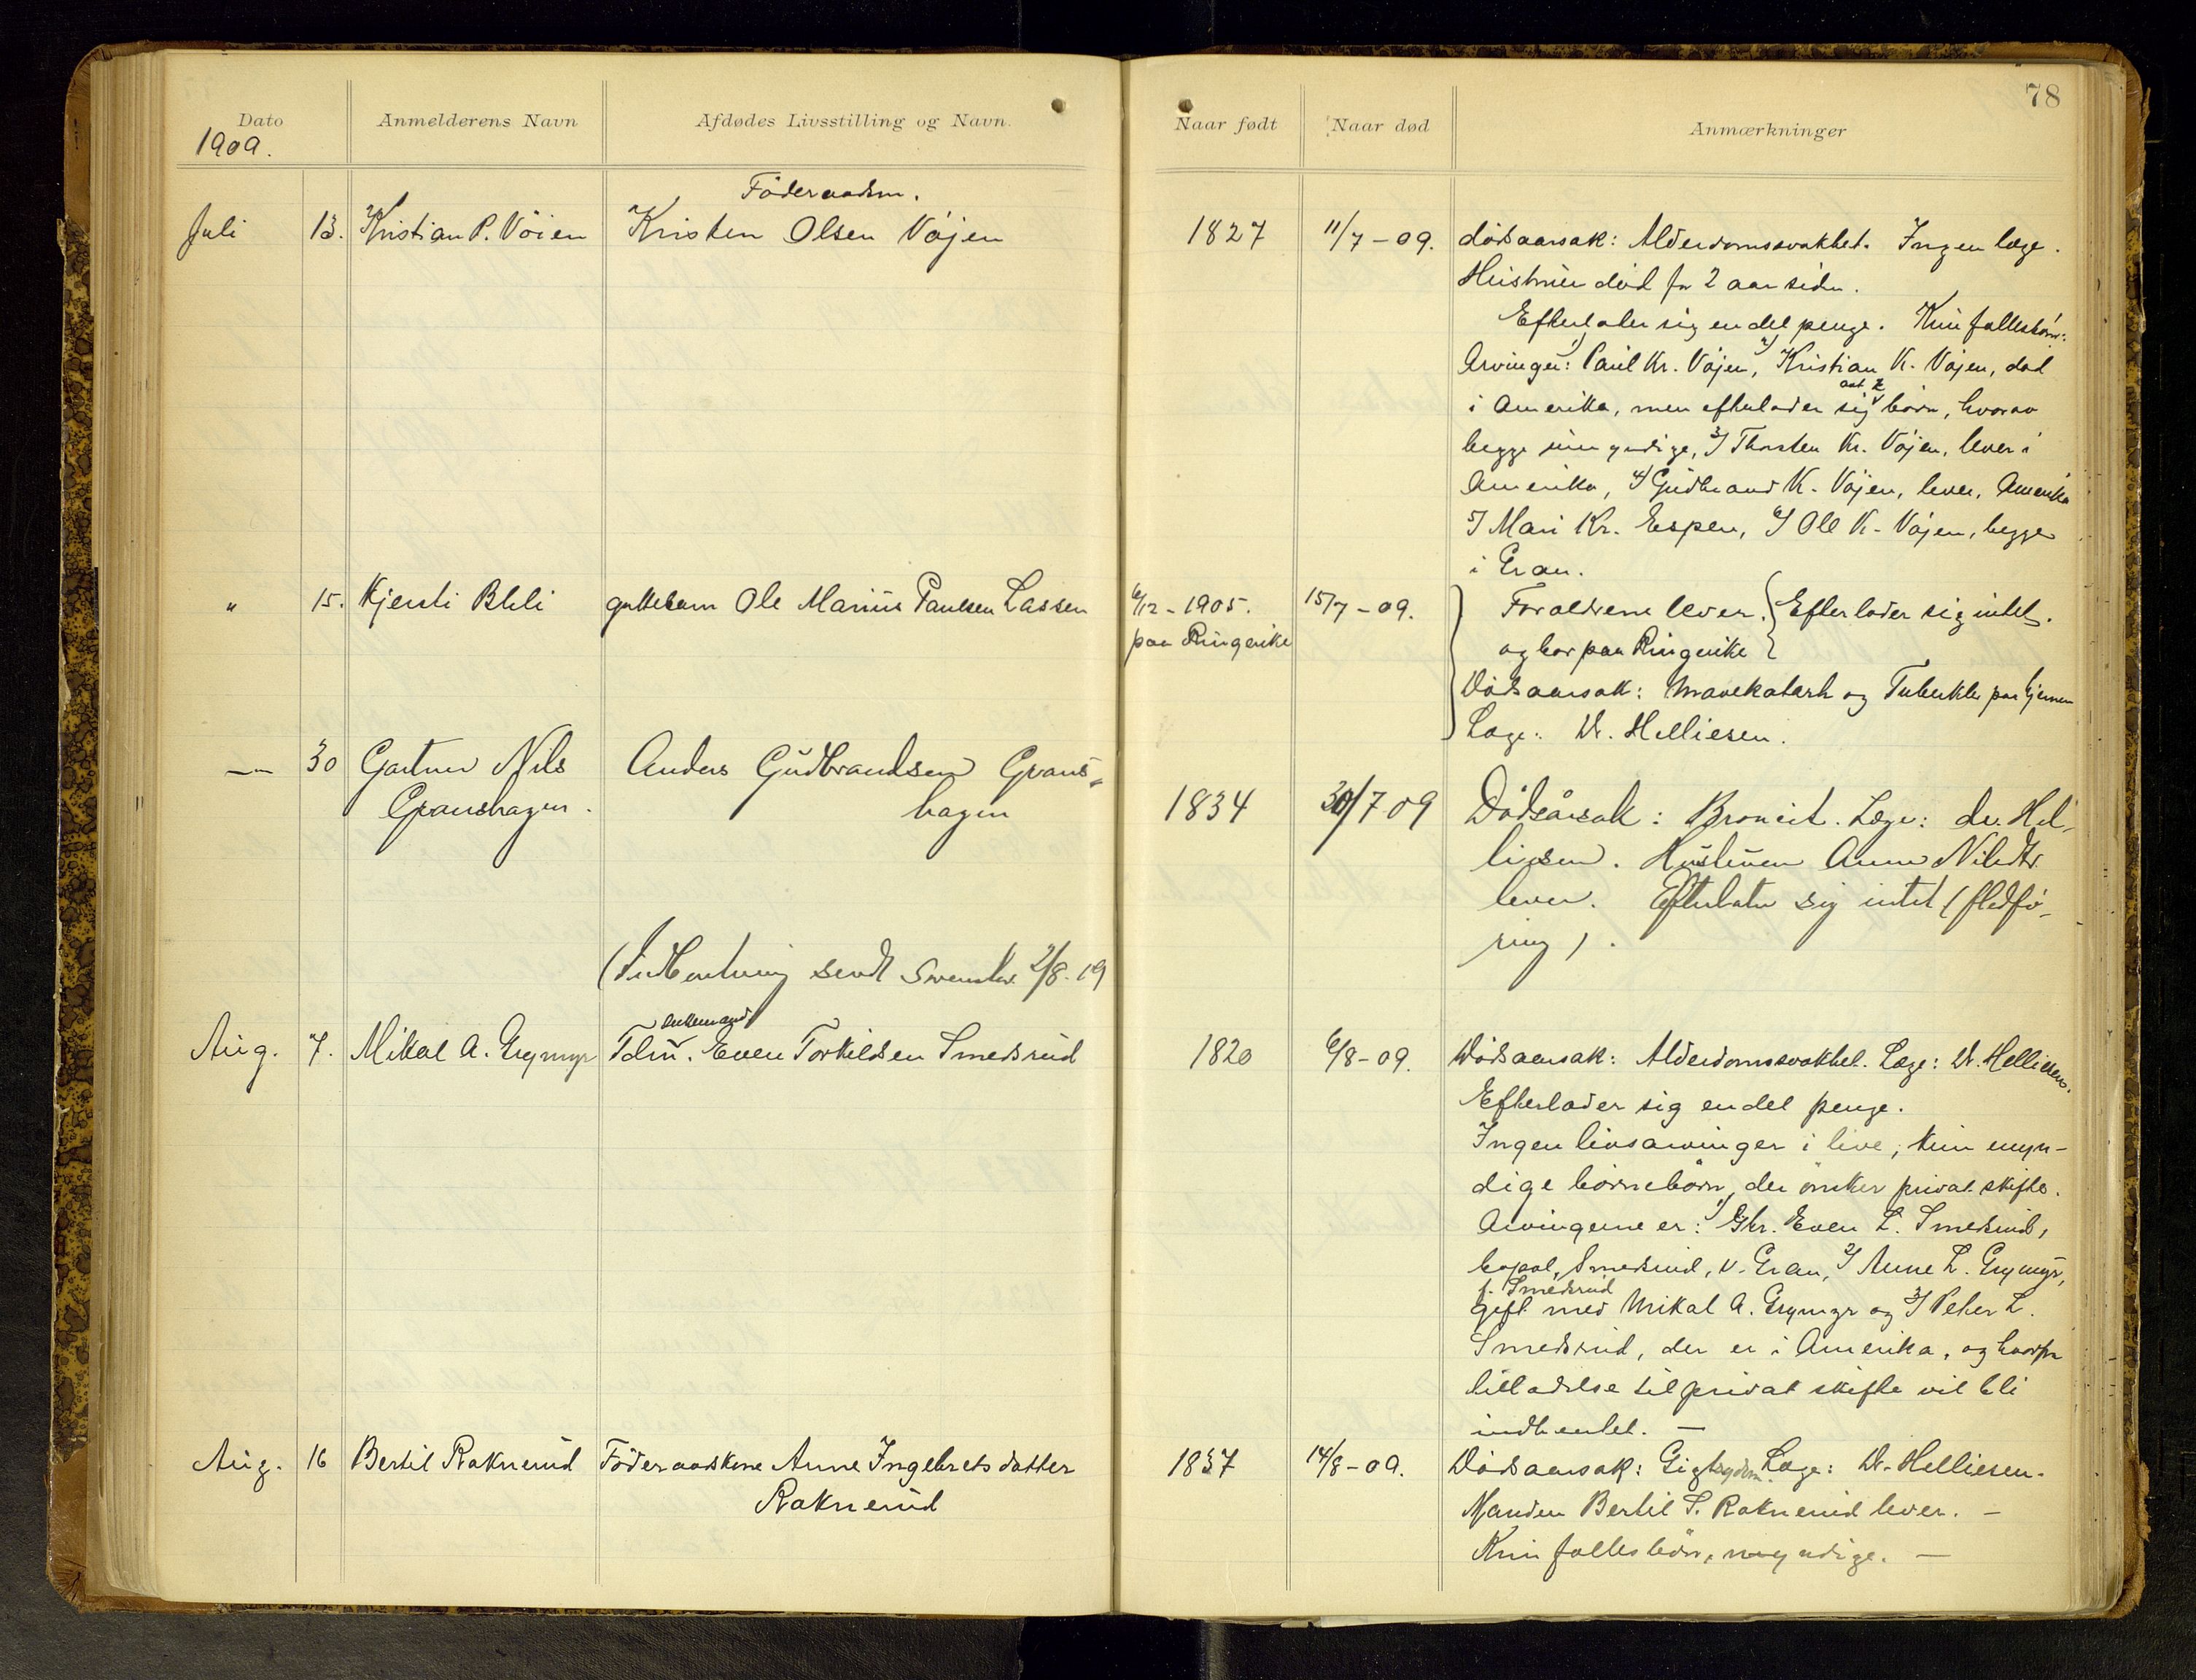 78
Dato
Anmelderens Navn
Afdødes Livsstilling og Navn.
Naar født
Naar død
Anmærkninger
1909.
Föderaadsm.
Juli 13. Kristian P. Vöien Kristen Olsen Vöjen 1827 11/7-09. dødsaarsak: Alderdomssvakhet. Ingen læge.
Hustruen död for 2 aar siden.
Efterlater sig en del penge. Kun fællesbörn:
Arvinger: 1) Paul Kr. Vöjen, 2) Kristian K. Vöjen, död
i Amerika, men efterlader sig börn, hvorav
begge umyndige, 3) Thorsten Kr. Vöjen, lever i
Amerika, 4) Gudbrand K. Vöjen, lever, Amerika
5) Mari Kr. Espen, 6) Ole K. Vöjen, begge
i Gran.
" 15. Kjersti Bleli guttebarn Ole Marius Paulsen Lassen 6/12-1905. 15/7-09. Foraeldrene lever. Efterlader sig intet.
paa Ringerike og bor paa Ringerike
Dödsaarsak: Mavekatarh og Tuberkler paa hjernen
Læge: Dr. Helliesen.
— 30 Gartner Nils Anders Gudbrandsen Grans-
Granshagen. hagen 1834 30/7 09 Dödsårsak: Broncit. Læge: dr. Hel-
liesen. Hustruen Anne Nilsdtr
lever. Efterlater sig intet (fledfö-
ring).
(Indberetning sendt 2/8. 19
Enkemand
Aug. 7. Mikal A. Grymyr Tolm. Even Torkildsen Smedsrud 1820 6/8-09. Dödsaarsak: Alderdomssvakhet. Læge: Dr. Helliesen.
Efterlader sig en del penge.
Ingen livsarvinger i live, kun umyn-
dige börnebörn, der önsker privat skifte.
Arvingerne er: 1) Gbr. Even L. Smedsrud,
bopæl, Smedsrud, V. Gran, 2) Anne L. Grymyr,
f. Smedsrud
gift med Mikal A. Grymyr og 3) Peter L.
Smedsrud, der er i Amerika, og hvorfor
tilladelse til privat skifte vil bli
indhentet. —
Aug. 16 Bertil Raknerud Föderaadskone Anne Ingebretsdatter 1837 14/8-09. Dödsaarsak: Gigtsygdom. Læge: Dr. Helliesen.
Raknerud Manden Bertil S. Raknerud lever. —
Kun fællesbörn, myndige. —